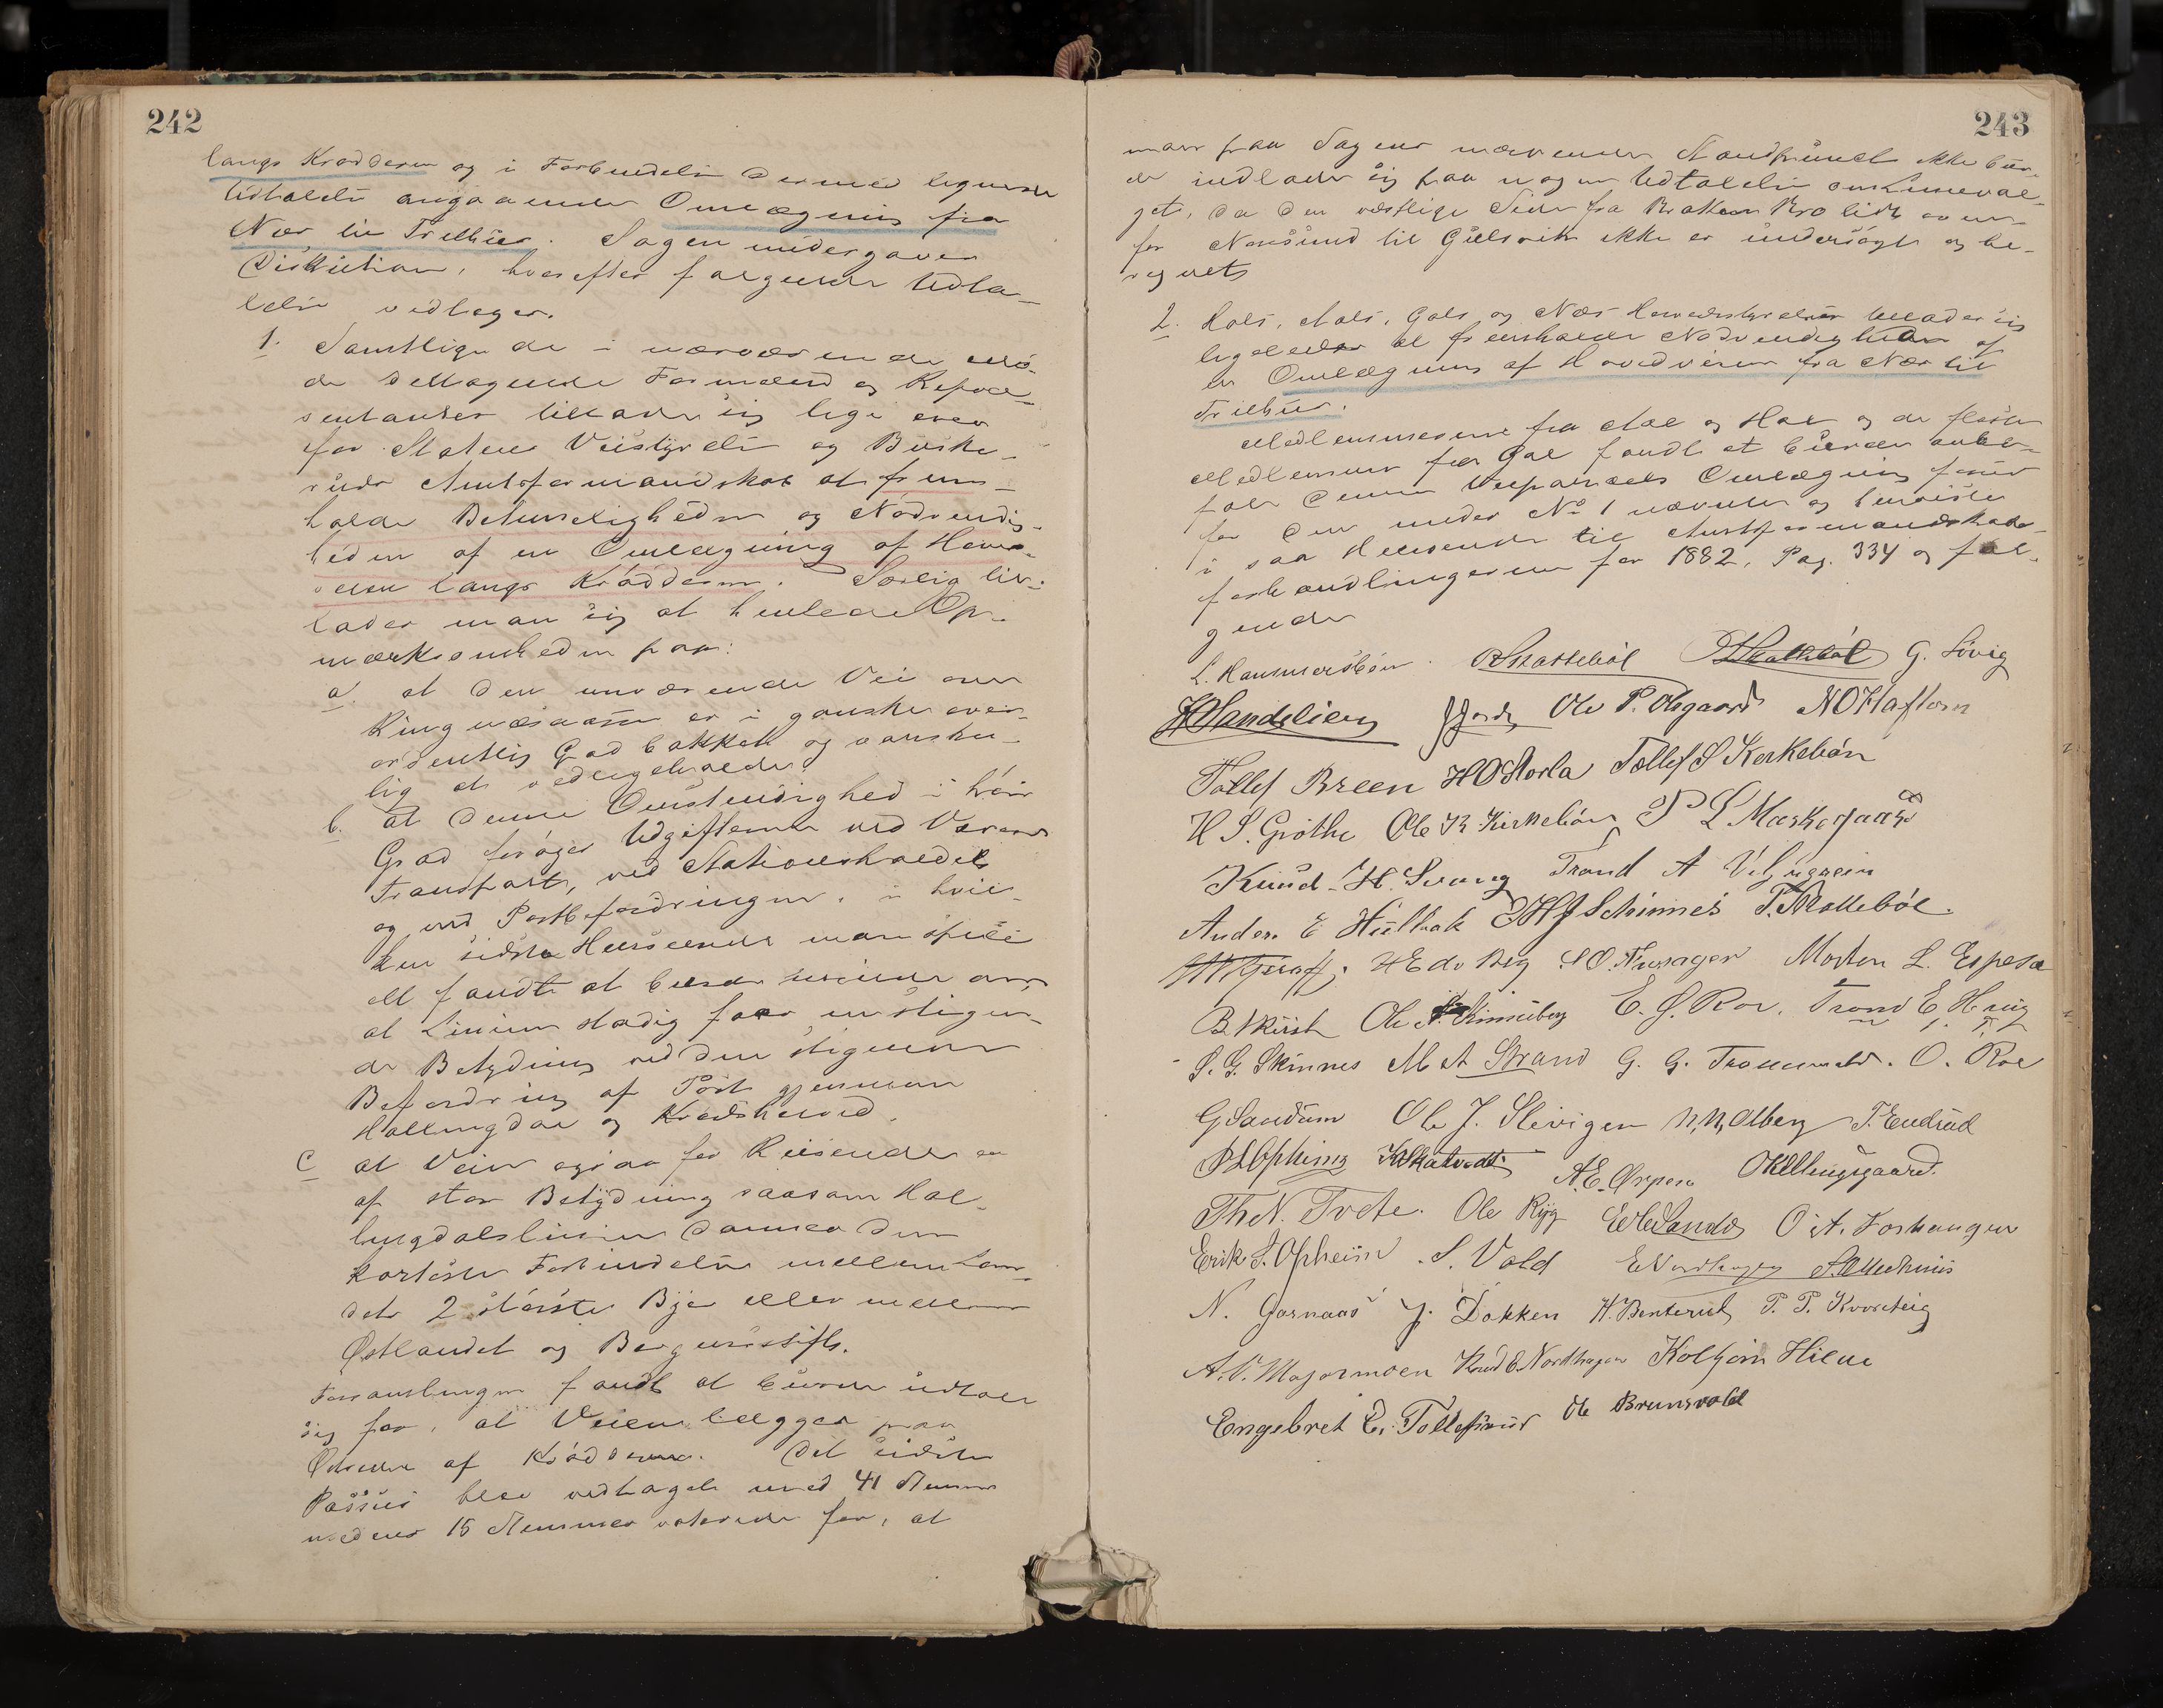 242
langs Krødderen og i Forbindelse dermed lignende
Udtalelse angaaende Omlægning fra
Næs til Trillhus. Sagen undergaves
Diskution, hvorefter følgende Udta-
lelse vedtoges.
1. Samtlige de i nærværende Mø-
de deltagende Formænd og Repræ-
sentanter tillader sig lige over
for Statens Veistyrelse og Buske-
ruds Amtsformandskab at frem-
holde Betimeligheden og Nødvendig-
heden af en Omlægning af Hoved-
veien langs Krødderen. Særlig til-
lader man sig at henlede Op-
mærksomheden paa:
a. at den nuværende Vei over
Ringnæsaasen er i ganske over-
ordentlig Grad bakket og vanske-
lig at vedligeholde.
b. at denne Omstændighed i høi
Grad forøger Udgifterne ved Varers
Transport, ved Stationsholdet
og ved Postbefordringen, i hvil-
ken sidste Henseende man speci-
elt fandt at burde minde om,
at Linien stadig faar en stigen-
de Betydning ved den stigende
Befordring af Post gjennem
Hallingdal og Krødsherred.
c at Veien ogsaa for Reisende er
af stor Betydning saasom Hal-
lingdalslinien danner den
korteste Forbindelse mellem Lan-
dets 2 største Byer eller mellem
Østlandet og Bergensstift.
Forsamlingen fandt at burde udtale
sig for, at Veien lægges paa
Østsiden af Krødderen. Det sidste
Passus blev vedtaget med 41 Stemmer
medens 15 Stemmer voterede for, at
243
man paa Sagens nærværende Standpunct ikke bur-
de indlade sig paa nogen Udtalelse om Linieval-
get, da den vestlige Side fra Bråten Bro lidt oven-
for Noresund til Gulsvik ikke er undersøgt og be-
regnet
2. Hols, Aals, Gols og Næs Herredsstyrelser tillader sig
ligeledes at fremholde Nødvendigheden af
en Omlægning af Hovedveien fra Næs til
Trillhus.
Medlemmerne fra Aal og Hol og de fleste
Medlemmer fra Gol fandt at burde anbe-
fale denne Veiparcels Omlægning forud
for den under No 1 nævnte og henviste
i saa Henseende til Amtsformandskabs-
forhandlingerne for 1882, Pag. 334 og føl-
gende
L. Hammersbøen. O Skattebøl G. Sevig
H Sandelien Ole P. Olsgaard N O Haftorn
Tollef Breen H O Storla Tollef S Kirkebøn
H S. Grøthe Ole K Kirkebøn P L Maskegaard
Knud H. Svang Trond A
Anders E Hulbak H J Schinnes T. Skattebøl.
H Edv Berg Morten L. Espese
B. Ole E. G. Roe. Trond E
S. G. Skinnes M A Strand G. G. O. Roe
G Sandum Ole J. Slevigen N. N. Olberg T. Endrud
A. E. Orpen
Th N. Tvete. Ole Rig O A. Forhaugen
Erik S. Opheim S. Vold
N. Garnaas J. Dokken H. Benterud T. T. Kvarteig
A. O. Magormoen Knud E. Nordhagen Kolbjørn Hilne
Engebret E. Tollefsrud Ole Brunsvold